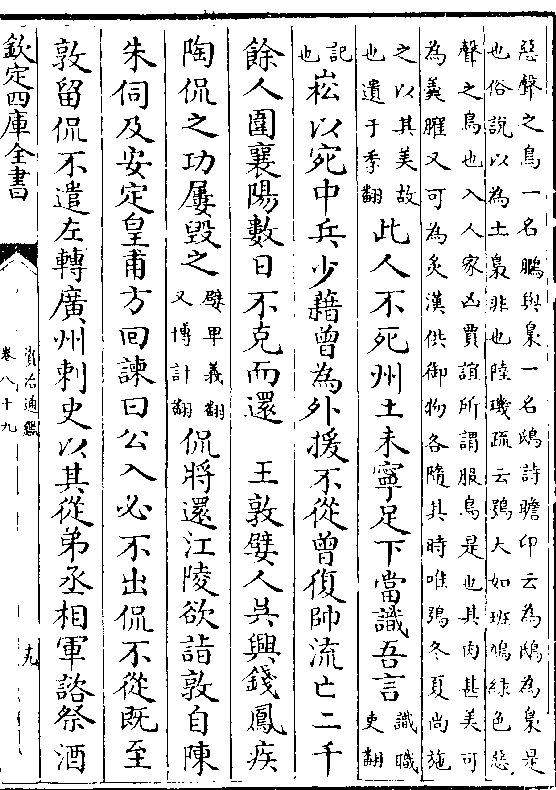 惡聲之鳥一名鵩與梟一名鴟詩瞻卬云為鴟為梟是
也俗說以為土梟非也陸璣疏云鴞大如班鳩綠色惡
聲之鳥也入人家凶賈誼所謂服鳥是也其肉甚美可
為羹臛又可為炙漢供御物各隨其時唯鴞冬夏尚施
之以其美故
也遺于季翻
此人不死州土未寧足下當識吾言
識職
吏翻
記
也
崧以宛中兵少藉曾為外援不從曾復帥流亡二千
餘人圍襄陽數日不克而還　王敦嬖人吳興錢鳳疾
陶侃之功屢毀之
嬖卑義翻
又博計翻
侃將還江陵欲詣敦自陳
朱伺及安定皇甫方回諫曰公入必不出侃不從既至
敦留侃不遣左轉廣州刺史以其從弟丞相軍諮祭酒
欽定四庫全書
資治通鑑
卷八十九
九